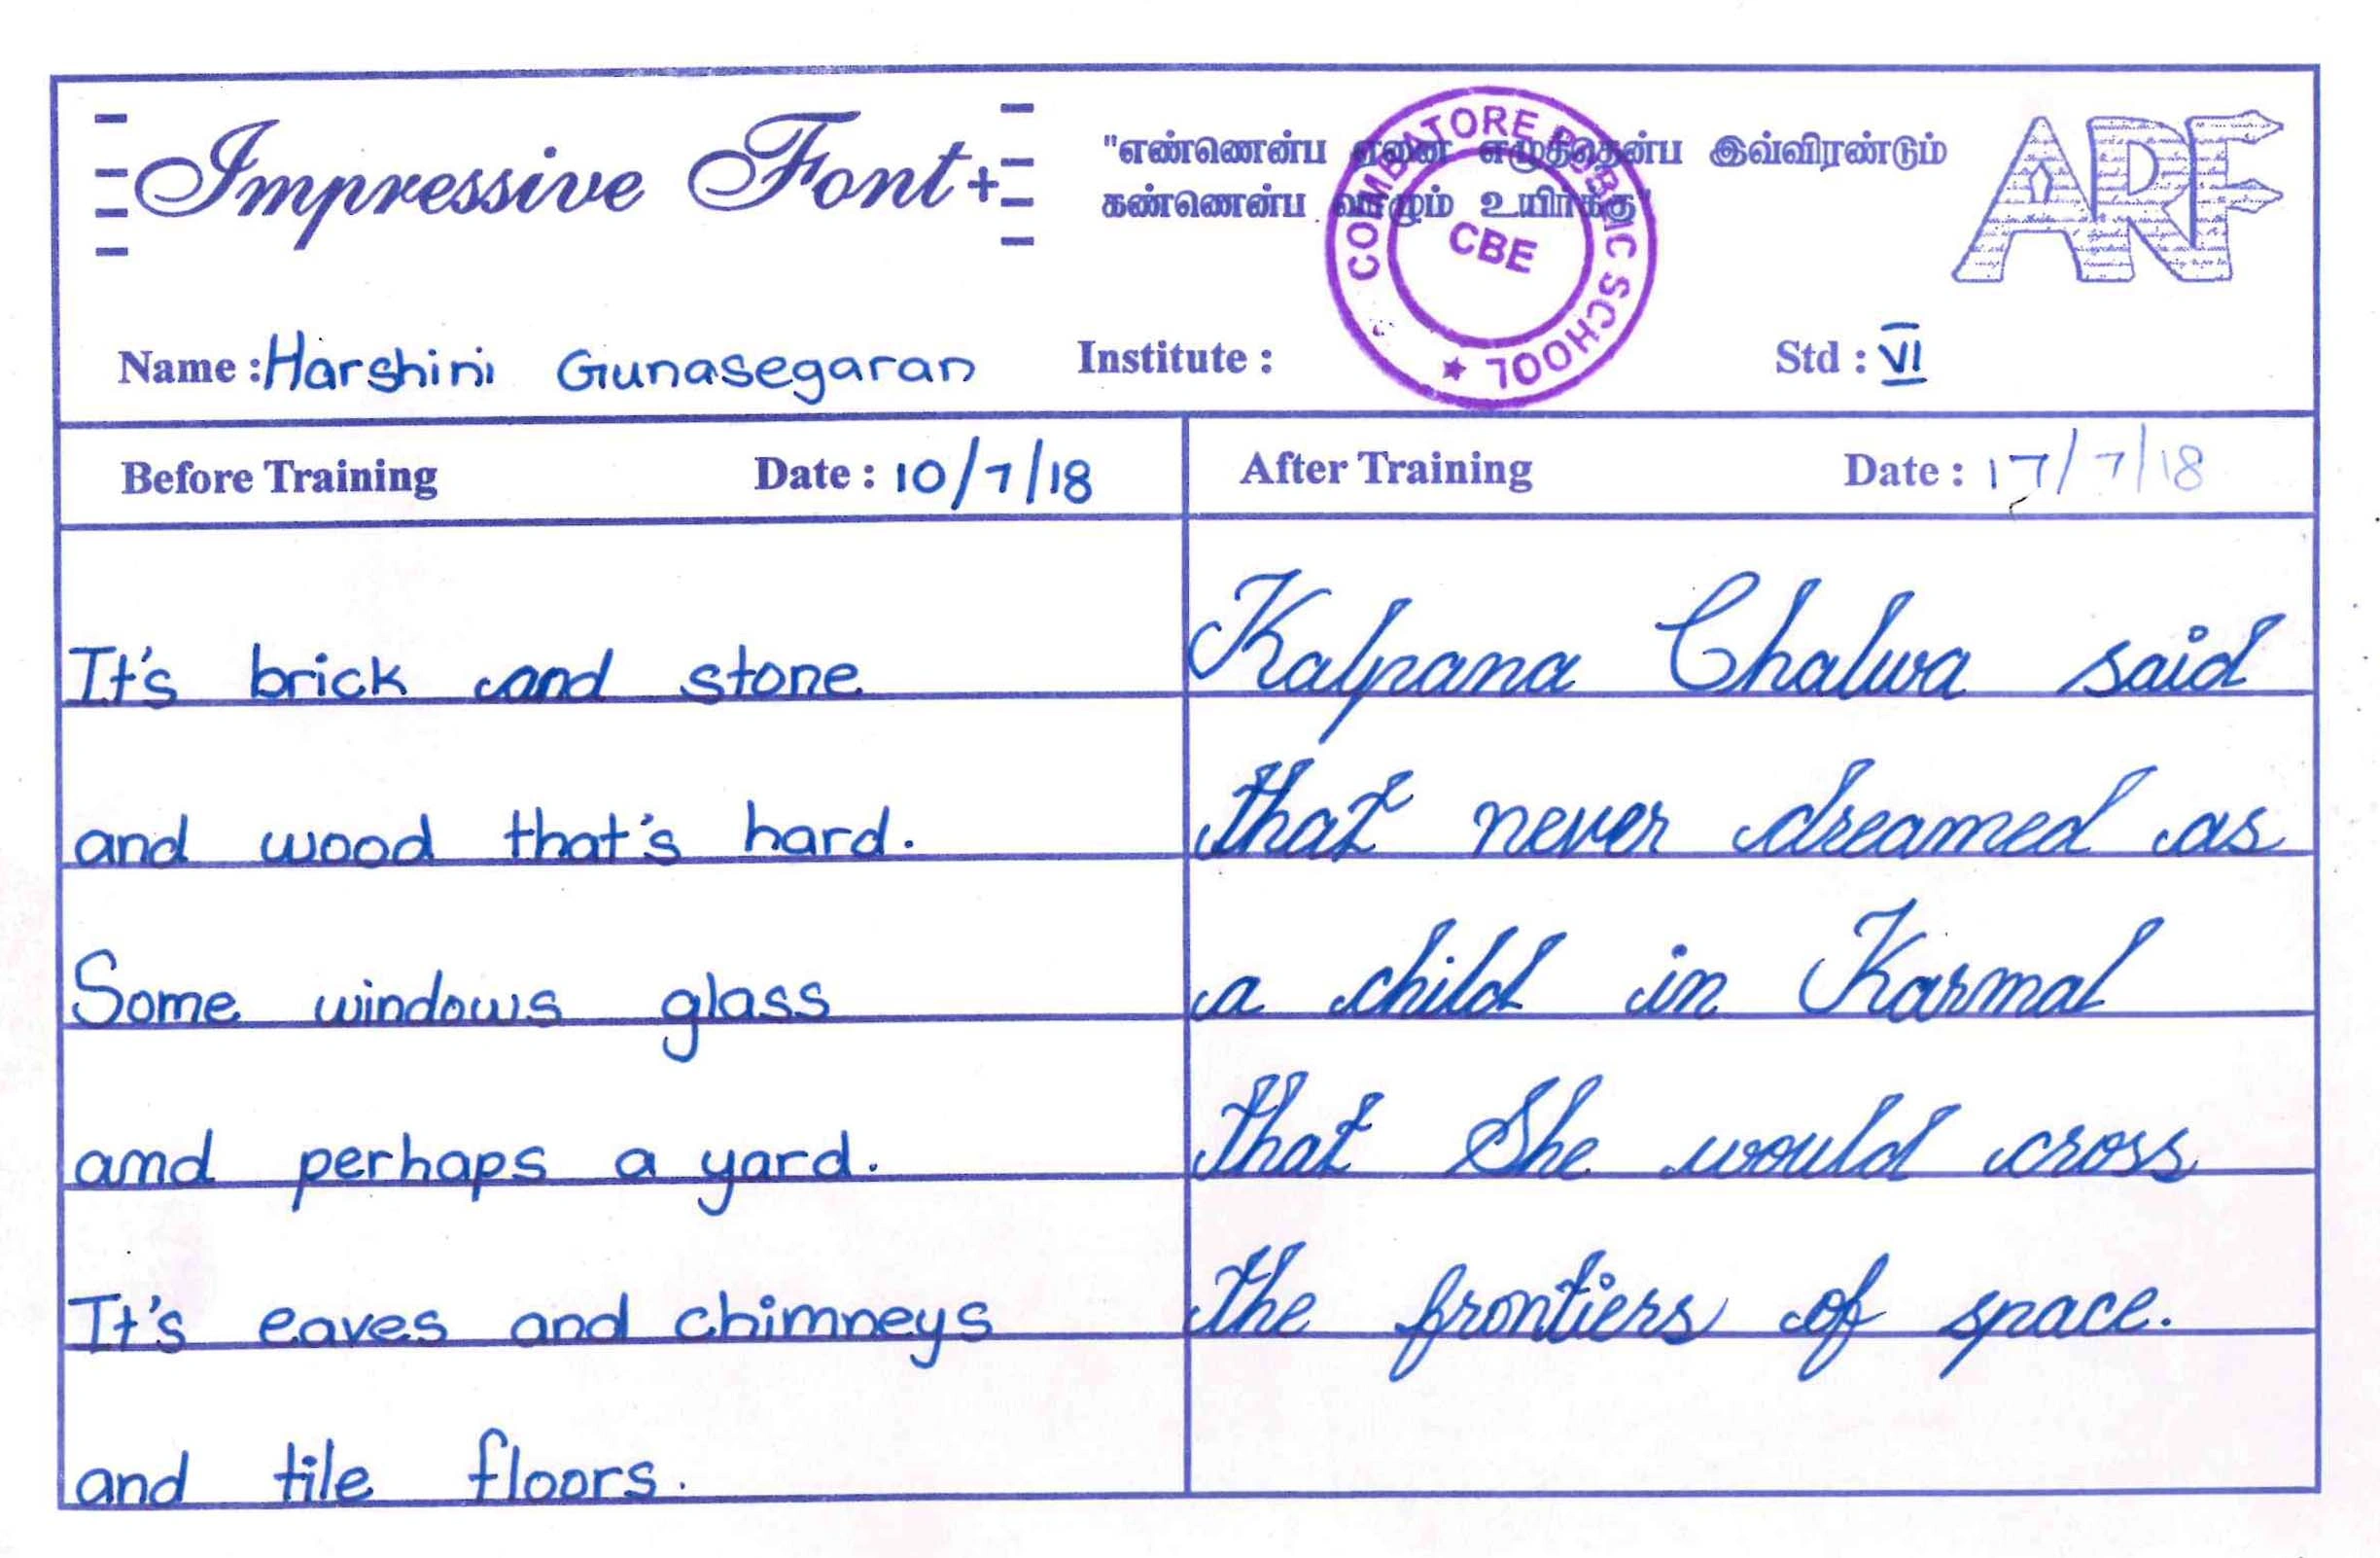 Impressive Font+
"எண்ணென்ப ஏனை எழுத்தென்ப இவ்விரண்டும்
கண்ணென்ப வாழும் உயிர்க்கு"
ARF
COMBATORE PUBLIC SCHOOL ★
CBE
Name : Harshini Gunasegaran Institute : Std : VI
Before Training Date : 10/7/18
It's brick and stone
and wood that's hard.
Some windows glass
amd perhaps a yard.
It's eaves and chimneys
and tile floors.
After Training Date : 17/7/18
Kalpana Chalwa said
that never dreamed as
a child in Karmal
that She would cross
the frontiers of space.